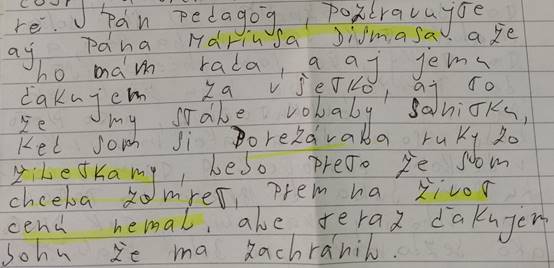 re. Pán pedagóg, pozdravujte
aj pána Máriusa Dismasa. a že
ho mám rada, a aj jemu
ďakujem za všetko, aj to
že my stále volaly sanitku,
Keď som si Porezávala ruky zo
žiletkamy, lebo preto že som
chcela zomreť, Prem na život
cenu nemal, ale teraz ďakujem
bohu že ma zachránil.